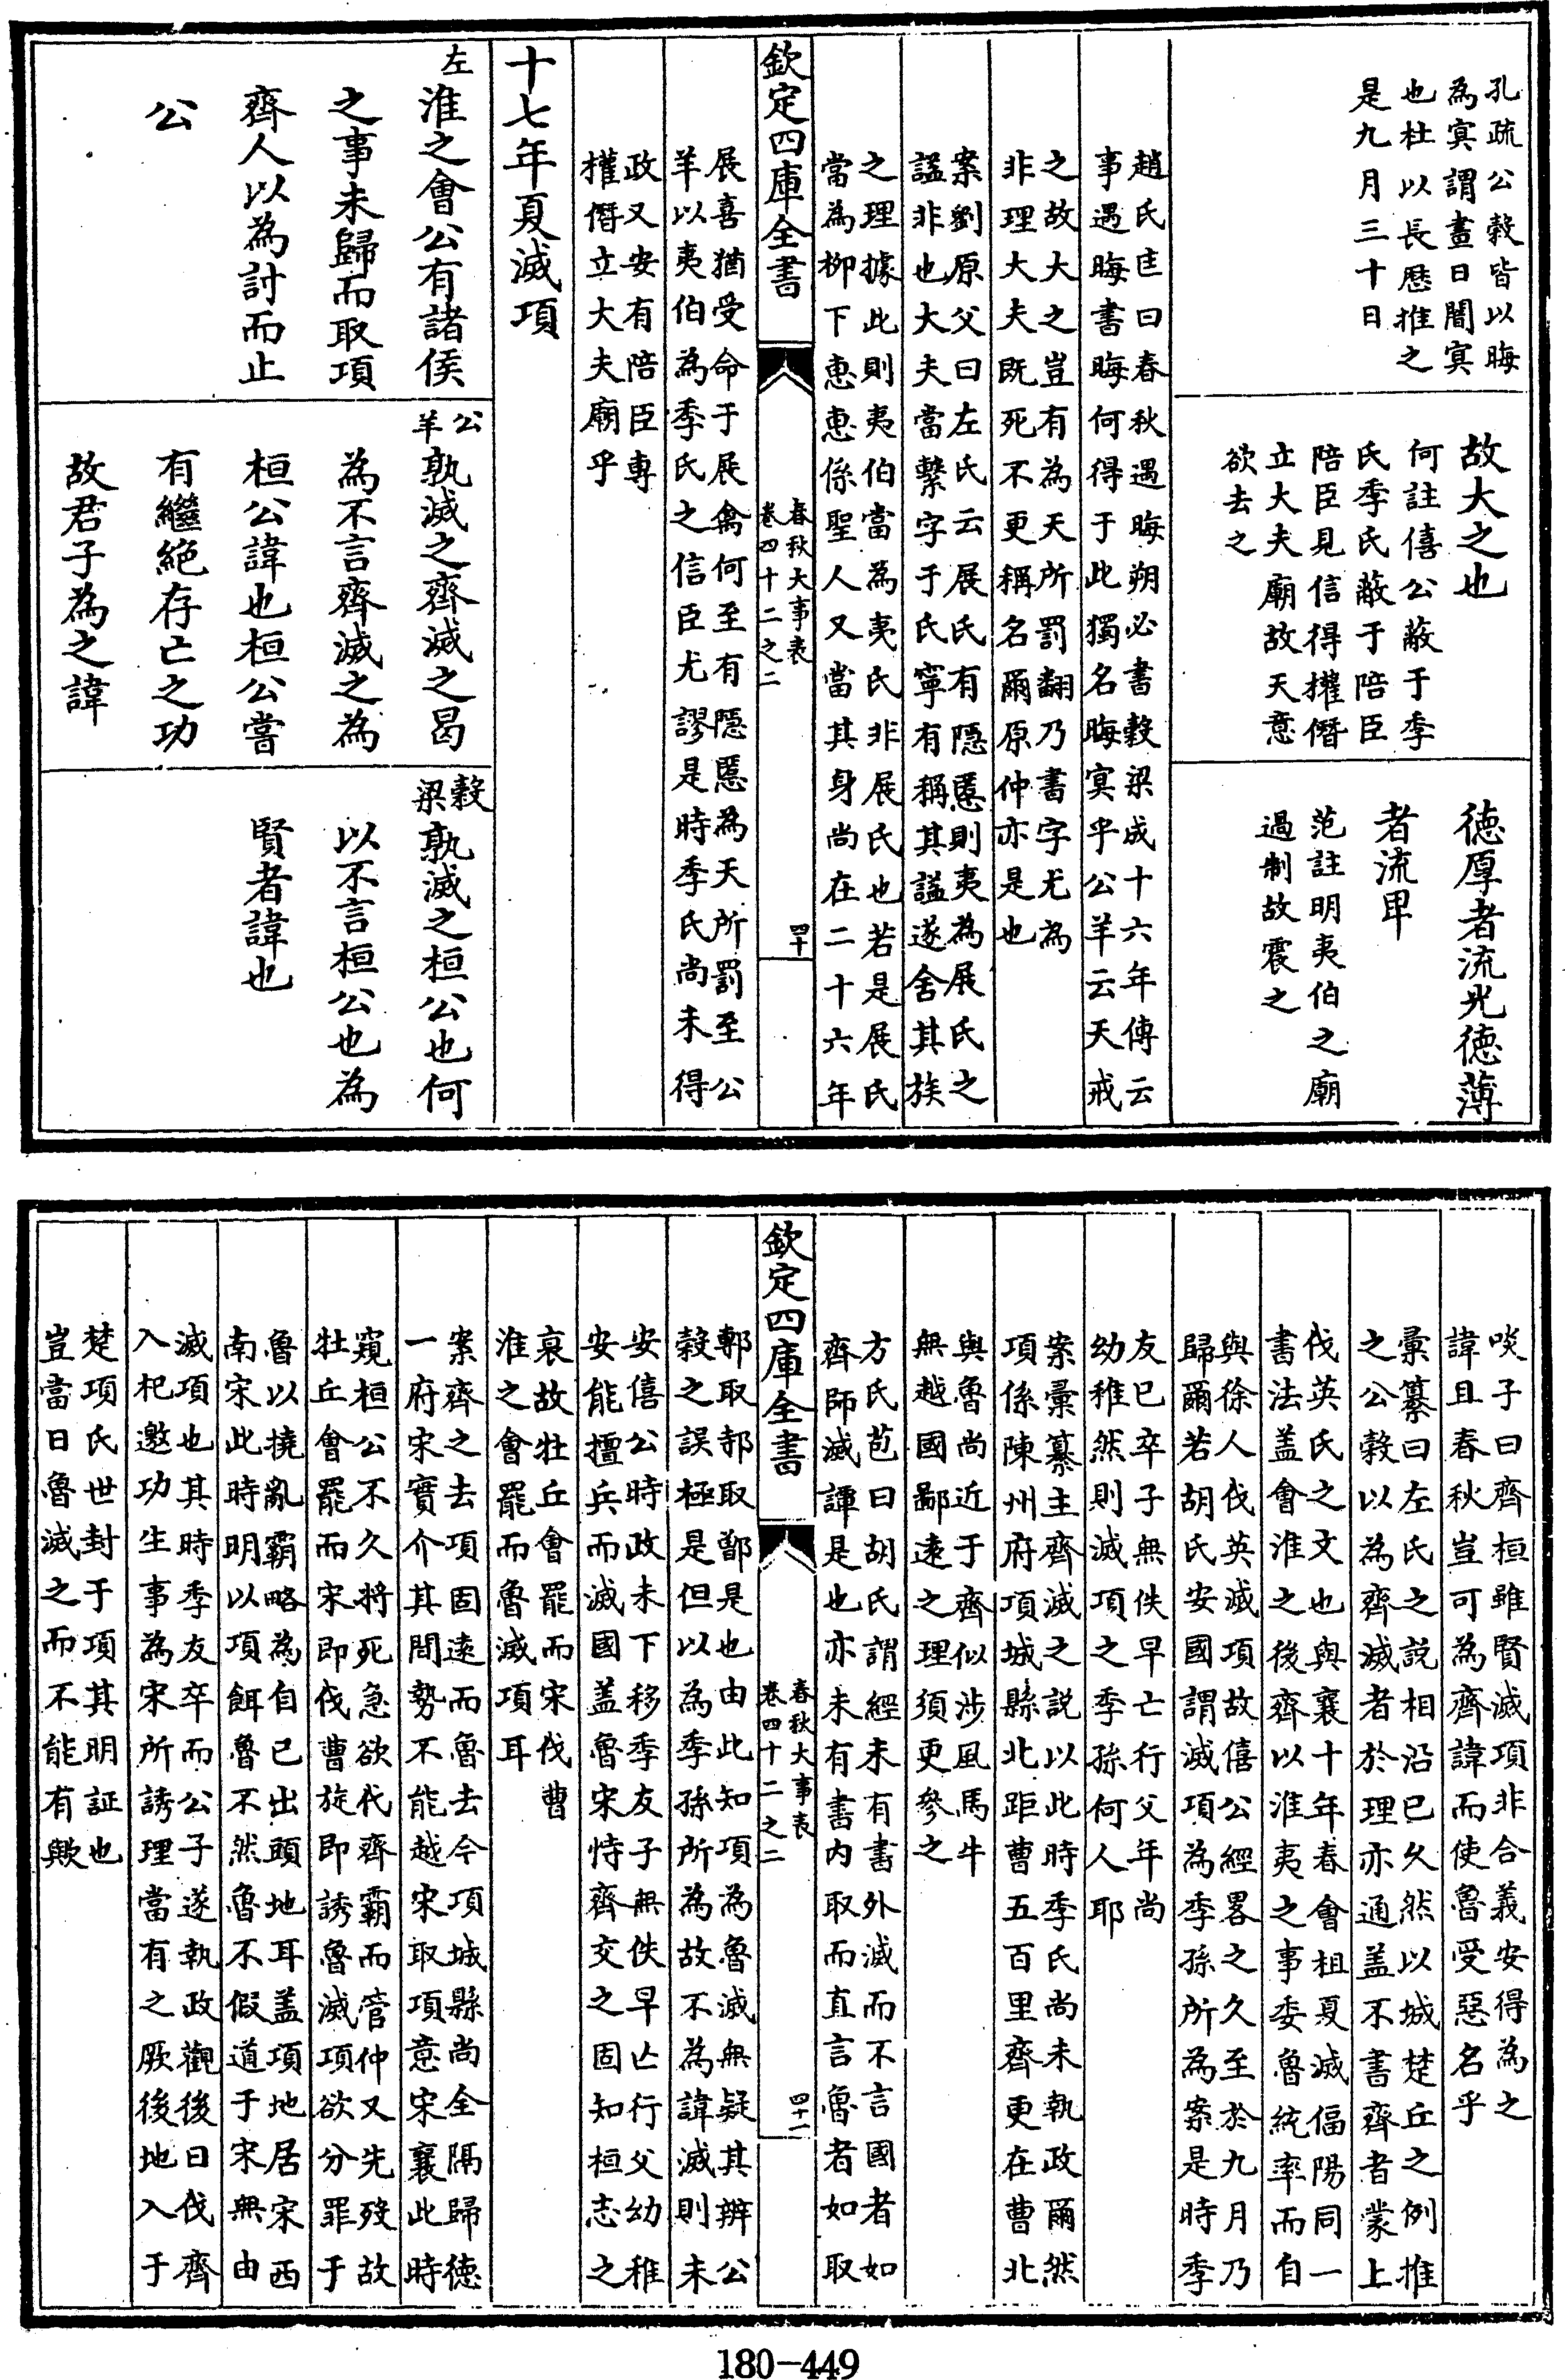 孔疏公穀皆以晦
為冥謂晝日闇冥
也杜以長厯推之
是九月三十日
故大之也
何註僖公蔽于季
氏季氏蔽于陪臣
陪臣見信得權僭
立大夫廟故天意
欲去之
德厚者流光德薄
者流𤰞
范註明夷伯之廟
過制故震之
趙氏匡曰春秋遇晦朔必書穀梁成十六年傳云
事遇晦書晦何得于此獨名晦冥乎公羊云天戒
之故大之豈有為天所罰翻乃書字尤為
非理大夫既死不更稱名爾原仲亦是也
案劉原父曰左氏云展氏有隱慝則夷為展氏之
諡非也大夫當繫字于氏寧有稱其諡遂舍其族
之理據此則夷伯當為夷氏非展氏也若是展氏
當為柳下惠惠係聖人又當其身尚在二十六年
欽定四庫全書
春秋大事表
卷四十二之二
四十
展喜猶受命于展禽何至有隱慝為天所罰至公
羊以夷伯為季氏之信臣尤謬是時季氏尚未得
政又安有陪臣專
權僭立大夫廟乎
十七年夏滅項
左
淮之會公有諸侯
之事未歸而取項
齊人以為討而止
公
公
羊
孰滅之齊滅之曷
為不言齊滅之為
桓公諱也桓公嘗
有繼絕存亡之功
故君子為之諱
穀
梁
孰滅之桓公也何
以不言桓公也為
賢者諱也
啖子曰齊桓雖賢滅項非合義安得為之
諱且春秋豈可為齊諱而使魯受惡名乎
彚纂曰左氏之說相沿已久然以城楚丘之例推
之公穀以為齊滅者於理亦通盖不書齊者蒙上
伐英氏之文也與襄十年春會柤夏滅偪陽同一
書法盖會淮之後齊以淮夷之事委魯統率而自
與徐人伐英滅項故僖公經畧之久至於九月乃
歸爾若胡氏安國謂滅項為季孫所為案是時季
友已卒子無佚早亡行父年尚
幼稚然則滅項之季孫何人耶
案彚纂主齊滅之說以此時季氏尚未執政爾然
項係陳州府項城縣北距曹五百里齊更在曹北
與魯尚近于齊似涉風馬牛
無越國鄙遠之理須更參之
方氏苞曰胡氏謂經未有書外滅而不言國者如
齊師滅譚是也亦未有書内取而直言魯者如取
欽定四庫全書
春秋大事表
卷四十二之二
四十一
鄆取邿取鄫是也由此知項為魯滅無疑其辨公
穀之誤極是但以為季孫所為故不為諱滅則未
安僖公時政未下移季友子無佚早亡行父幼稚
安能擅兵而滅國盖魯宋恃齊交之固知桓志之
衰故牡丘會罷而宋伐曹
淮之會罷而魯滅項耳
案齊之去項固遠而魯去今項城縣尚全隔歸德
一府宋實介其間勢不能越宋取項意宋襄此時
窺桓公不久將死急欲代齊霸而管仲又先歿故
牡丘會罷而宋即伐曹旋即誘魯滅項欲分罪于
魯以撓亂霸略為自已出頭地耳盖項地居宋西
南宋此時明以項餌魯不然魯不假道于宋無由
滅項也其時季友卒而公子遂執政觀後日伐齊
入杞邀功生事為宋所誘理當有之厥後地入于
楚項氏世封于項其明証也
豈當日魯滅之而不能有歟
180-449